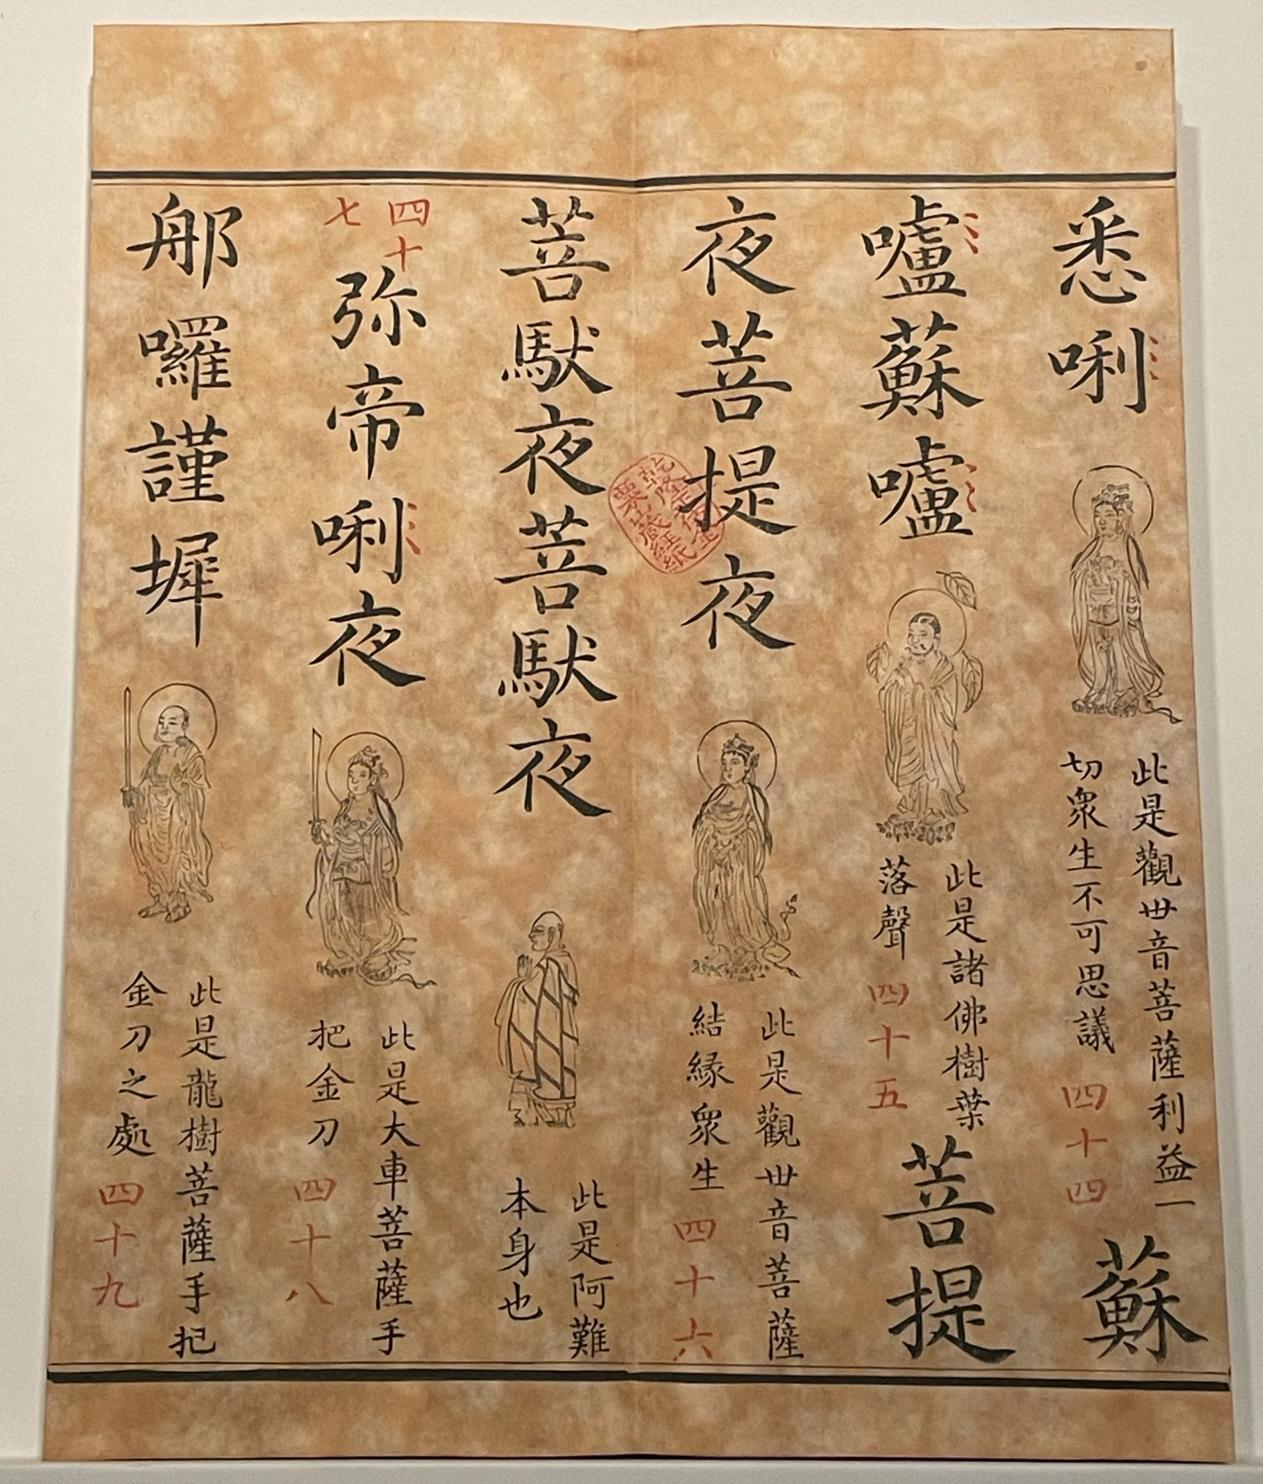 悉唎
此是觀世音菩薩利益一
切衆生不可思議 四十四
蘇
嚧蘇嚧
此是諸佛樹葉
落聲 四十五
菩提
夜菩提夜
此是觀世音菩薩
結緣衆生 四十六
菩馱夜菩馱夜
此是阿難
本身也
四十
七
弥帝唎夜
此是大車菩薩手
把金刀 四十八
那囉謹墀
此是龍樹菩薩手把
金刀之處 四十九
乾隆年
藏經紙